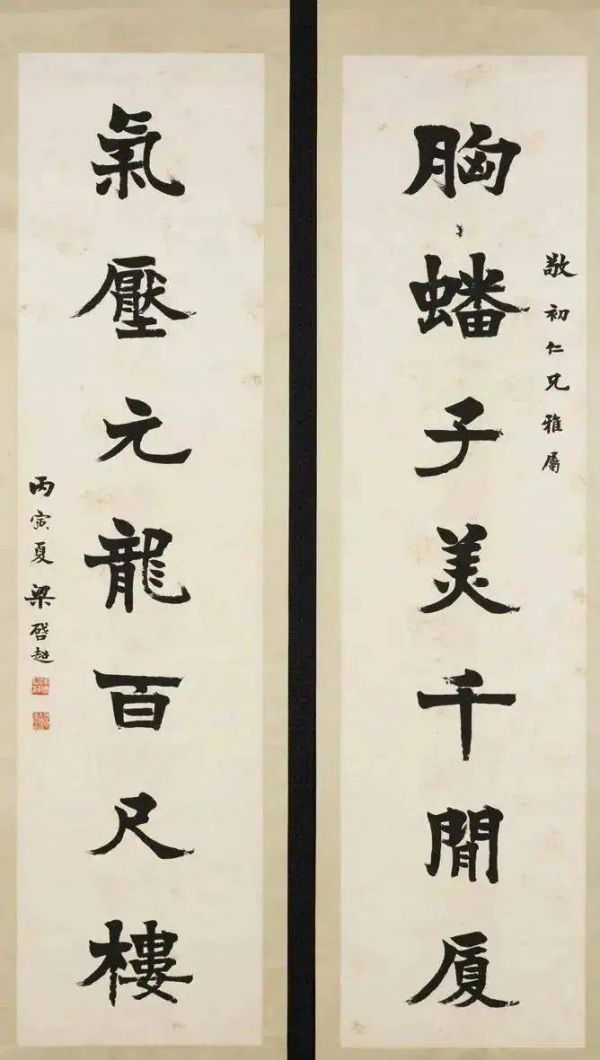 敬初仁兄雅屬
胸蟠子美千間厦
氣壓元龍百尺樓
丙寅夏梁啓超